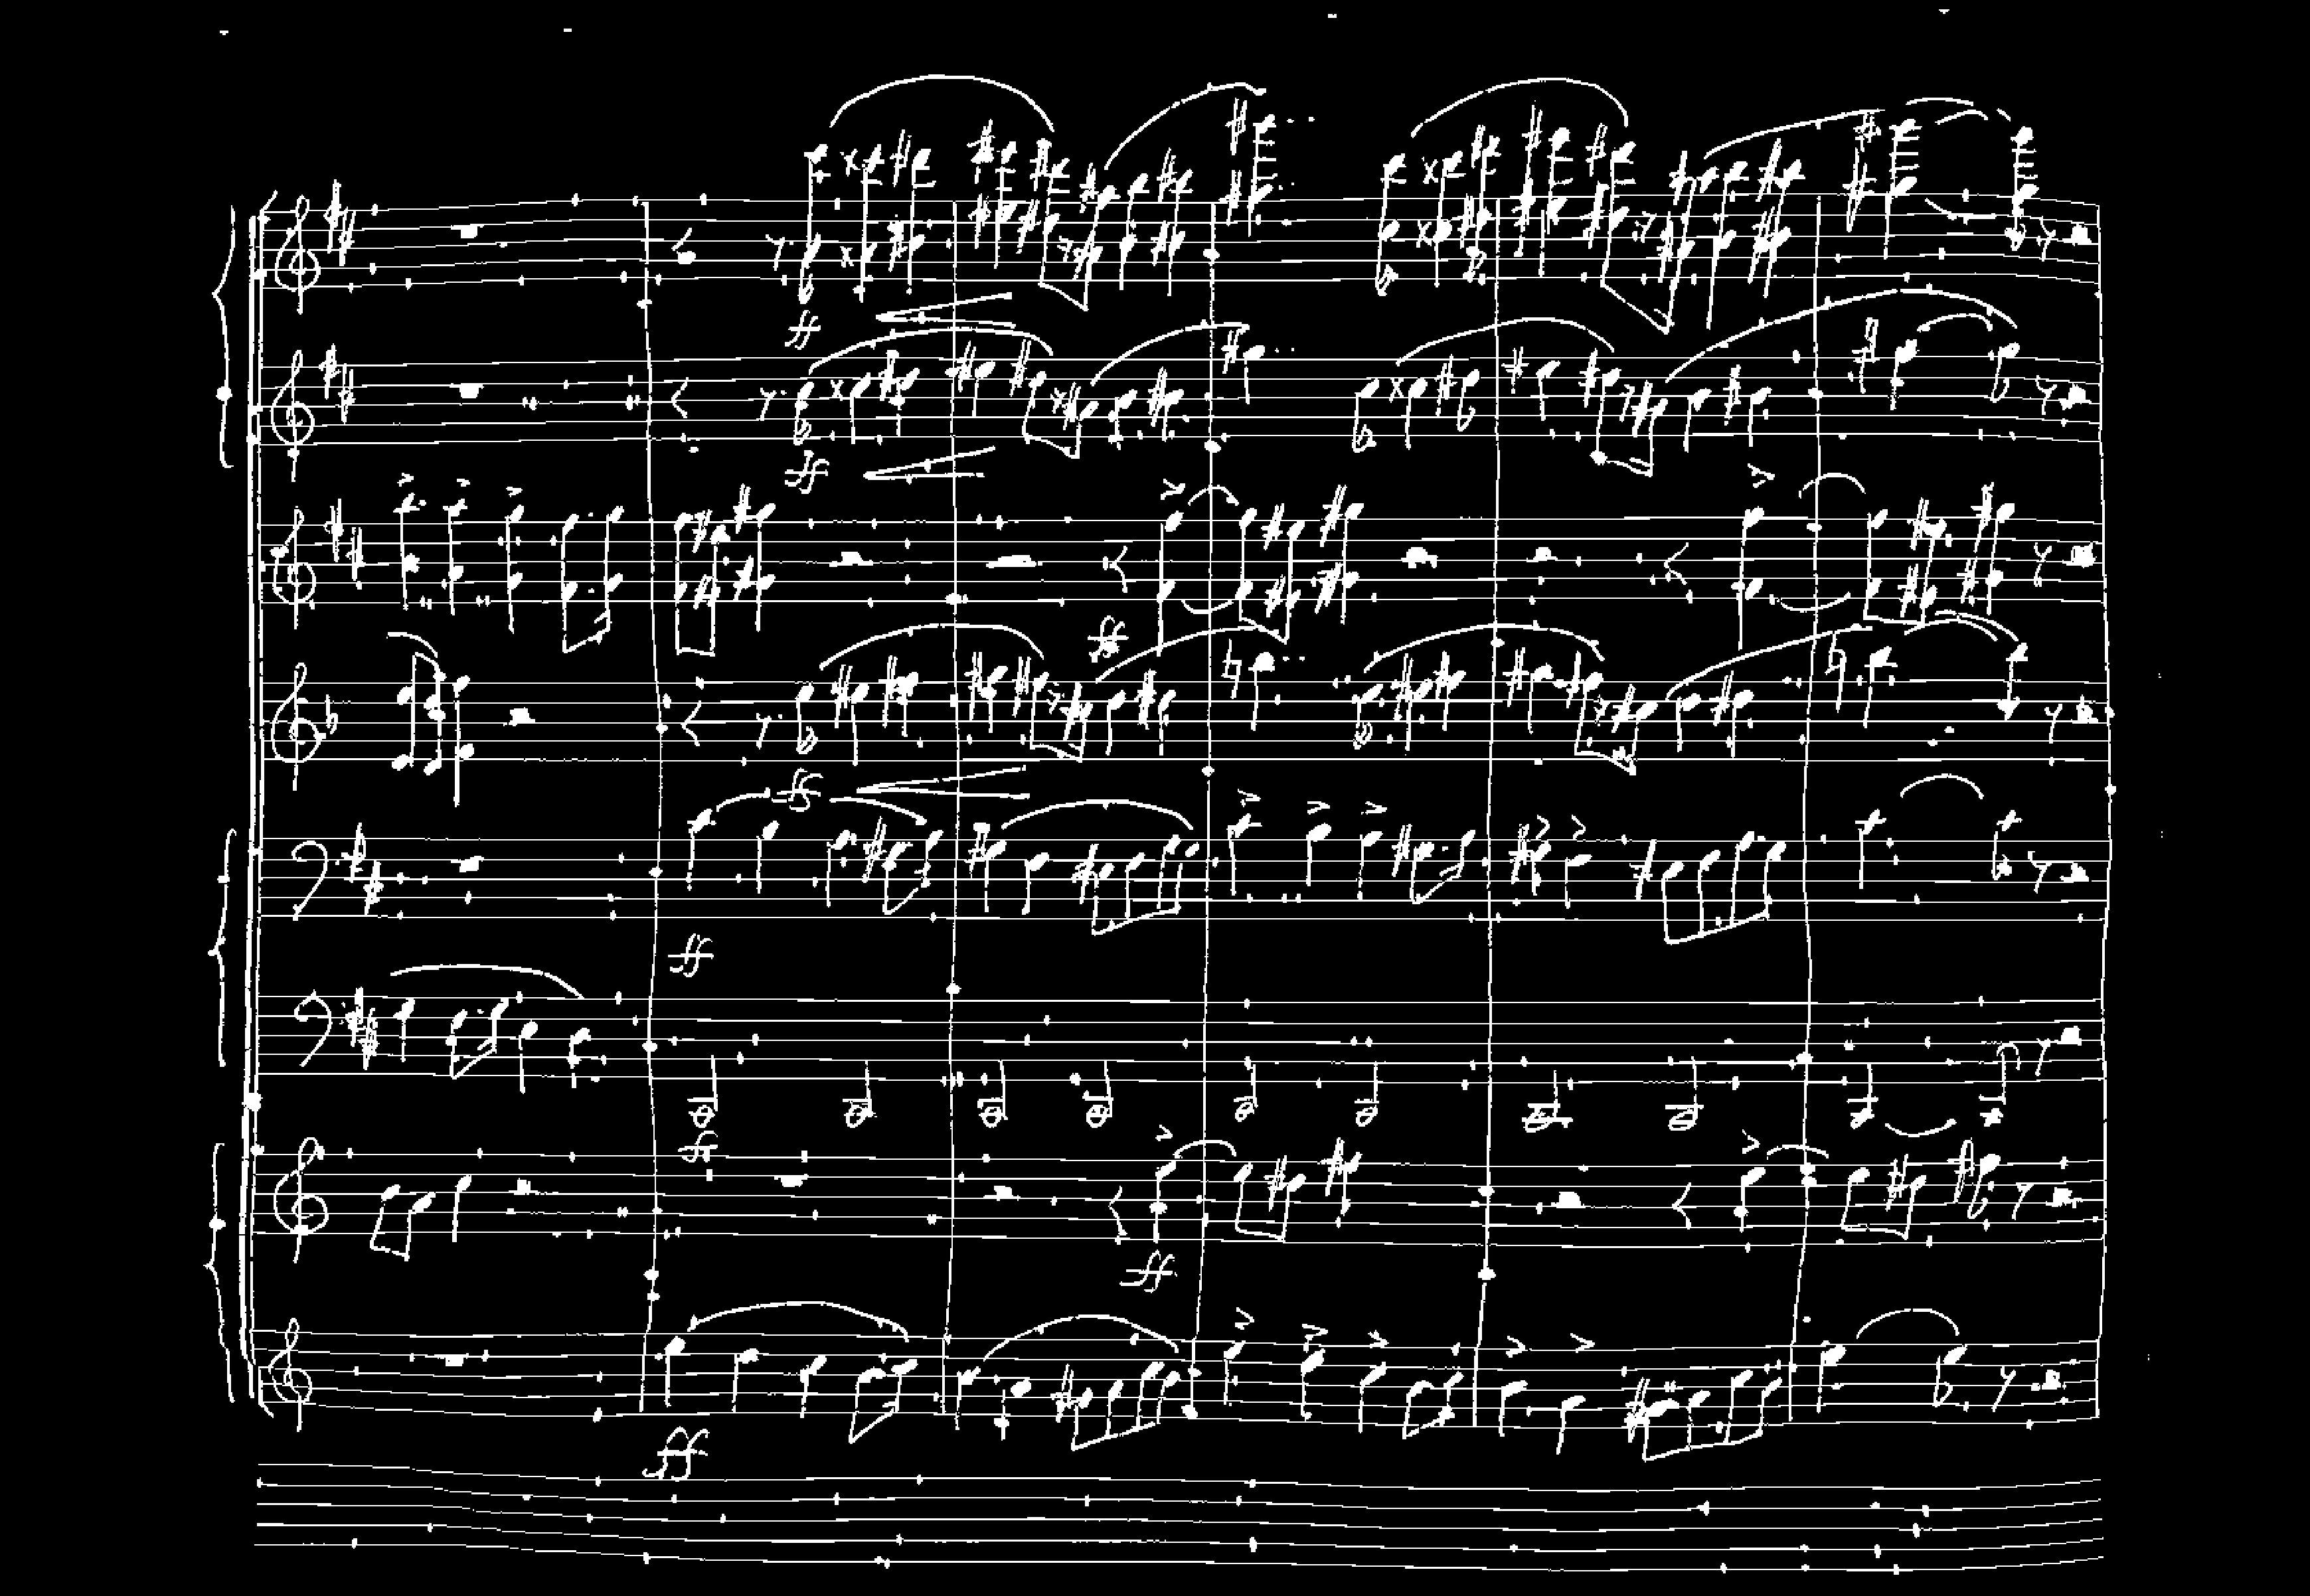 ff
ff
ff
ff
ff
ff
ff
ff